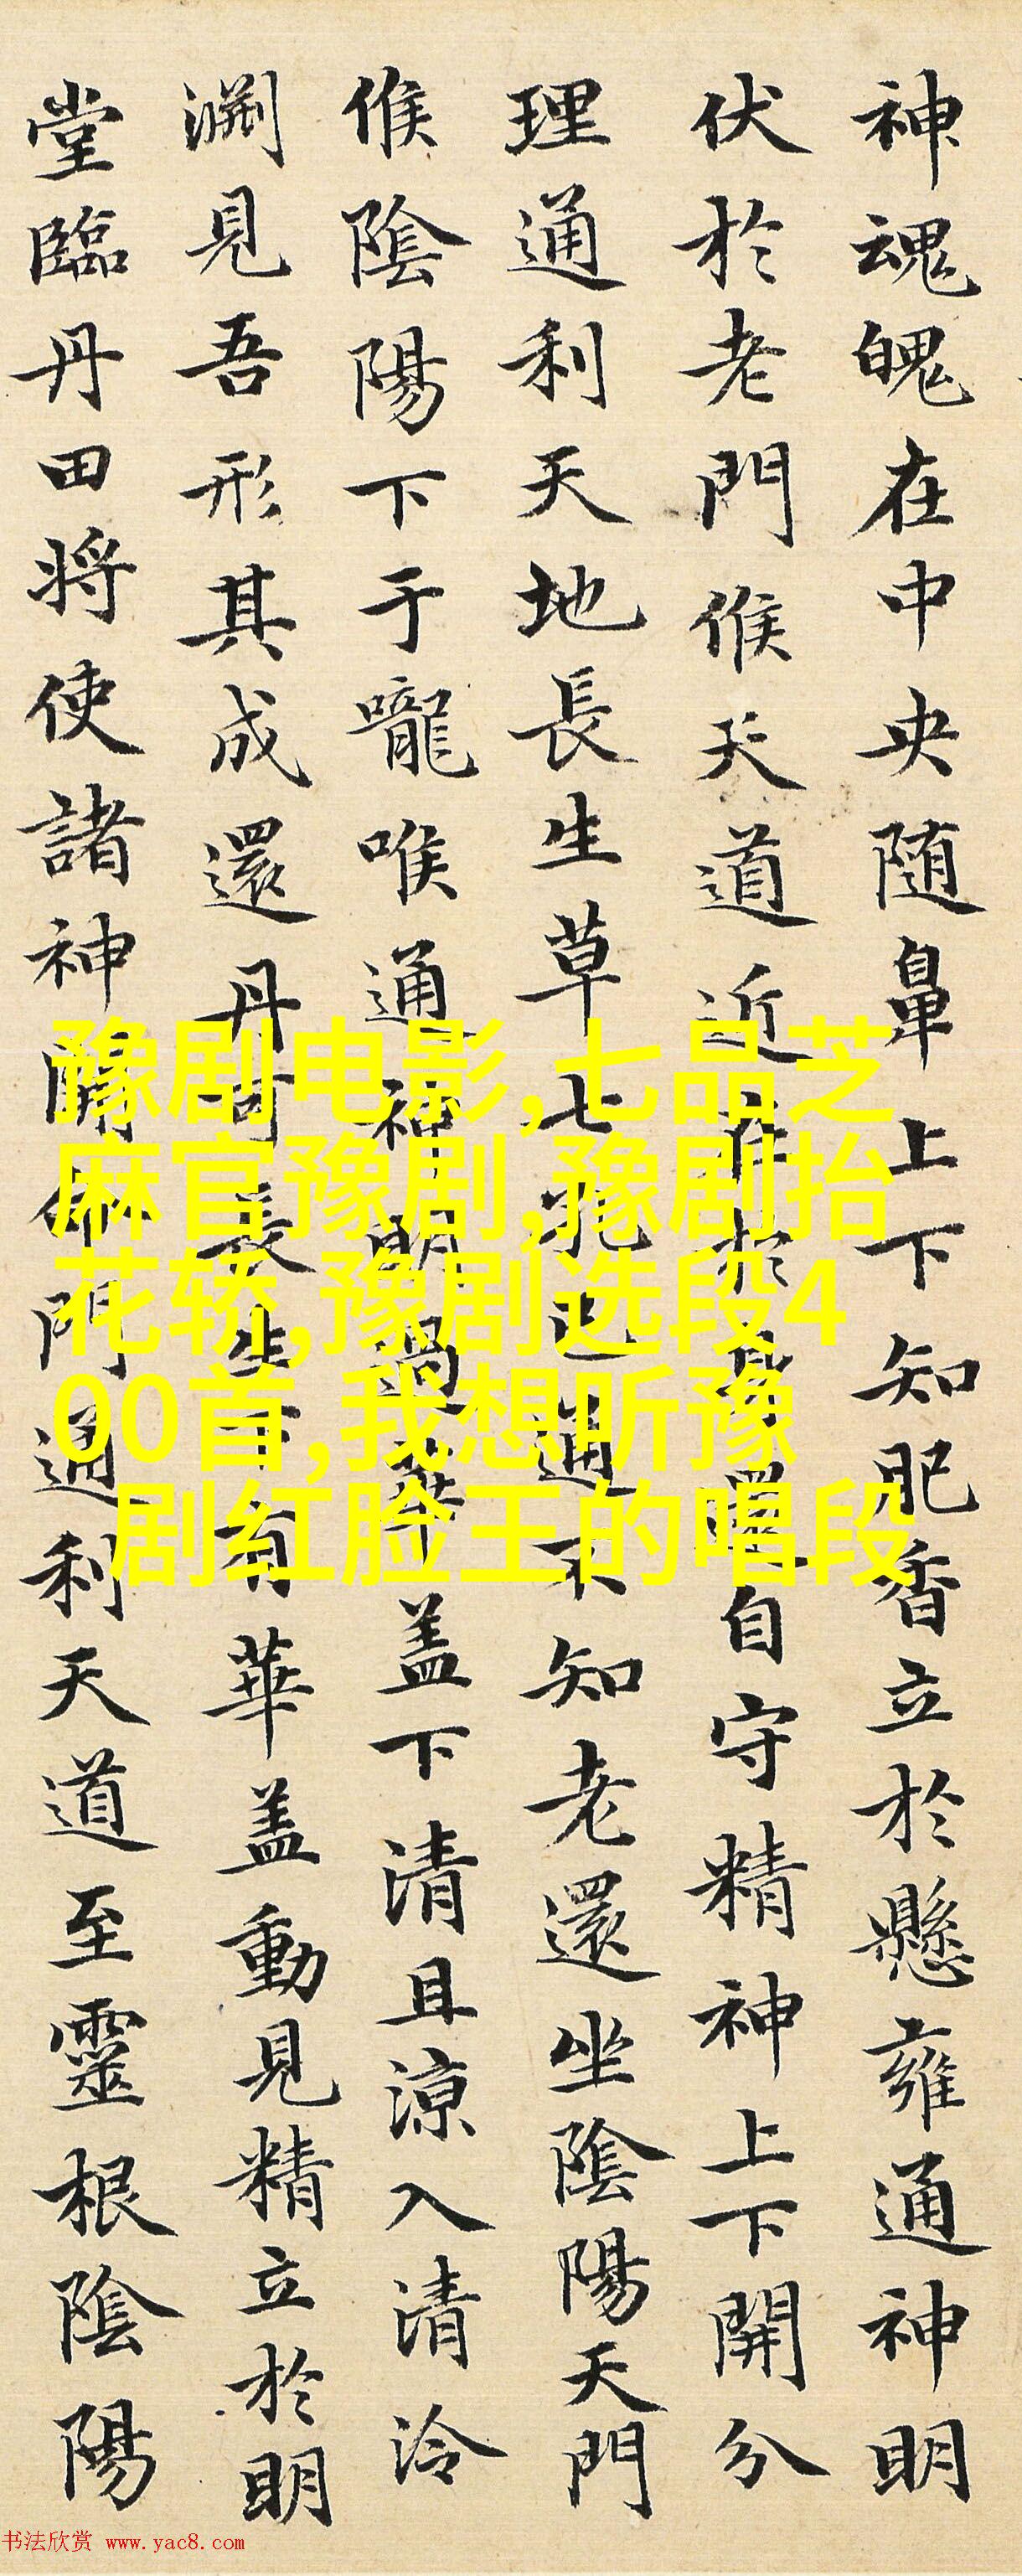 神魂魄在中央随鼻上下知肥香立於懸雍通神明
伏於老門候天道近在於身還自守精神上下開分
理通利天地長生草七孔已通不知老還坐陰陽天門
候陰陽下于嚨喉通神明過華盖下清且涼入清泠
淵見吾形其成還丹可長生下有華盖動見精立於明
堂臨丹田将使諸神開命門通利天道至靈根陰陽
豫剧电影,七品芝
麻官豫剧,豫剧抬
花轿,豫剧选段4
00首,我想听豫
剧红脸王的唱段
书法欣赏 www.yac8.com